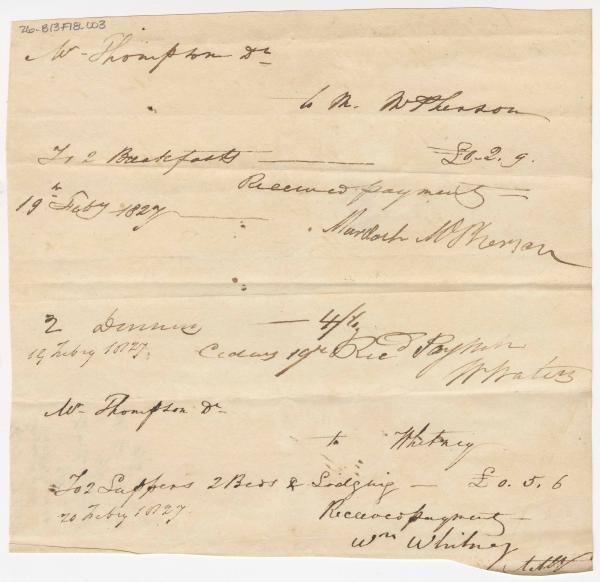 26-B13-F18-003
Mr Thompson Dr
to M. McPherson
To 2 Breakfasts — £0.2.9.
Received payment —
19th Feby 1827 —
Murdoch McPherson
2 Dinners — 4/
19 Feby 1827. Cedars 19th Recd Paymt
W Waters
Mr Thompson Dr
to Whitney
To 2 Suppers 2 Beds & Lodging — £0.5.6
20 Feby 1827 Received payment —
Wm Whitney